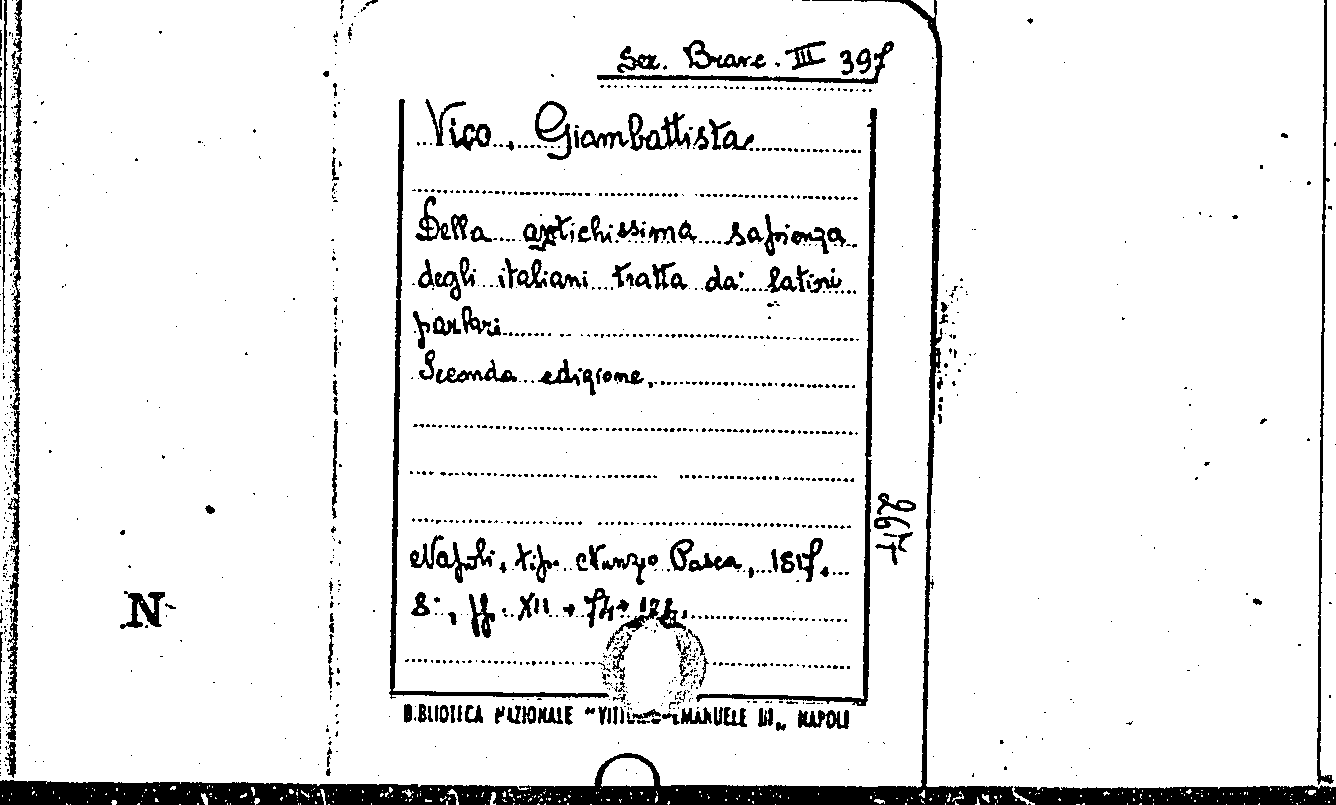 Sez. Branc. III 397
Vico, Giambattista
Della antichissima sapienza
degli italiani tratta da' latini
parlari
Seconda edizione.
Napoli, tip. Nunzio Pasca, 1817.
8°, pp. XII + 74
BIBLIOTECA NAZIONALE "VITTORIO EMANUELE III" NAPOLI
N